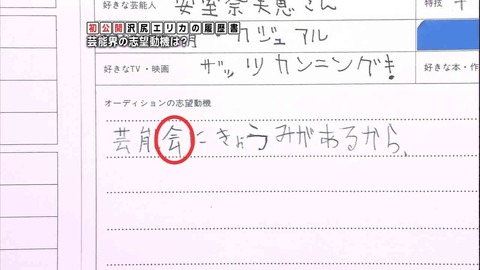 初公開 沢尻エリカの履歴書
芸能界の志望動機は?
好きな芸能人
安室奈美恵さん
特技
カジュアル
好きなTV・映画
ザッツカンニング
好きな本・作
オーディションの志望動機
芸能会にきょうみがあるから、